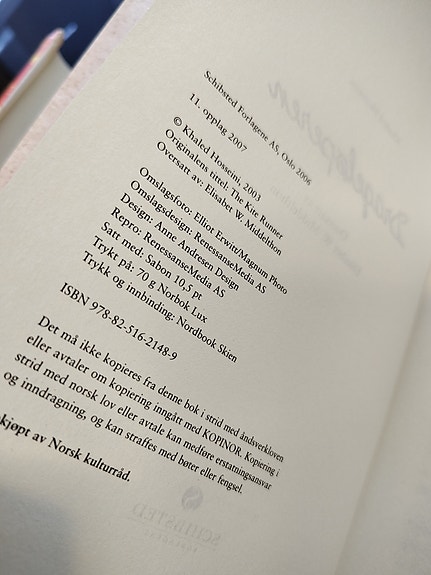 Schibsted Forlagene AS, Oslo 2006
11. opplag 2007
© Khaled Hosseini, 2003
Originalens tittel: The Kite Runner
Oversatt av: Elisabet W. Middelthon
Omslagsfoto: Elliot Erwitt/Magnum Photo
Omslagsdesign: RenessanseMedia AS
Design: Anne Andresen Design
Repro: RenessanseMedia AS
Satt med: Sabon 10,5 pt
Trykt på: 70 g Norbok Lux
Trykk og innbinding: Nordbook Skien
ISBN 978-82-516-2148-9
Det må ikke kopieres fra denne bok i strid med åndsverkloven
eller avtaler om kopiering inngått med KOPINOR. Kopiering i
strid med norsk lov eller avtale kan medføre erstatningsansvar
og inndragning, og kan straffes med bøter eller fengsel.
kjøpt av Norsk kulturråd.
SCHIBSTED